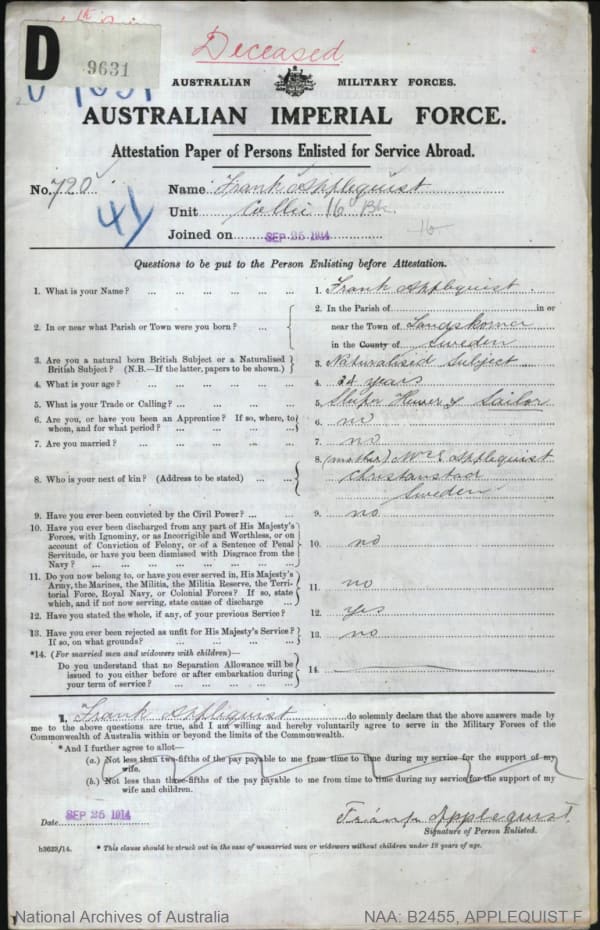 Deceased
D 9631
AUSTRALIAN MILITARY FORCES.
AUSTRALIAN IMPERIAL FORCE.
Attestation Paper of Persons Enlisted for Service Abroad.
No. 720 Name Frank Applequist
41 Unit Collie 16 Bn.
Joined on SEP 25 1914 16
Questions to be put to the Person Enlisting before Attestation.
1. What is your Name? ... 1. Frank Applequist
2. In or near what Parish or Town were you born? ... 2. In the Parish of in or
near the Town of Landskorna
in the County of Sweden
3. Are you a natural born British Subject or a Naturalised
British Subject? (N.B.—If the latter, papers to be shown.) 3. Naturalised Subject
4. What is your age? ... 4. years
5. What is your Trade or Calling? ... 5. Sleeper Hewer & Sailor
6. Are you, or have you been an Apprentice? If so, where, to
whom, and for what period? ... 6. no
7. Are you married? ... 7. no
8. Who is your next of kin? (Address to be stated) ... 8. (mother) Mrs E Applequist
Christanstad
Sweden
9. Have you ever been convicted by the Civil Power? ... 9. no
10. Have you ever been discharged from any part of His Majesty's
Forces, with Ignominy, or as Incorrigible and Worthless, or on
account of Conviction of Felony, or of a Sentence of Penal
Servitude, or have you been dismissed with Disgrace from the
Navy? ... 10. no
11. Do you now belong to, or have you ever served in, His Majesty's
Army, the Marines, the Militia, the Militia Reserve, the Terri-
torial Force, Royal Navy, or Colonial Forces? If so, state
which, and if not now serving, state cause of discharge ... 11. no
12. Have you stated the whole, if any, of your previous Service? 12. yes
13. Have you ever been rejected as unfit for His Majesty's Service?
If so, on what grounds? ... 13. no
*14. (For married men and widowers with children)—
Do you understand that no Separation Allowance will be
issued to you either before or after embarkation during
your term of service? ... 14.
I, Frank Applequist do solemnly declare that the above answers made by
me to the above questions are true, and I am willing and hereby voluntarily agree to serve in the Military Forces of the
Commonwealth of Australia within or beyond the limits of the Commonwealth.
* And I further agree to allot—
(a.) Not less than two-fifths of the pay payable to me from time to time during my service for the support of my
wife.
(b.) Not less than three-fifths of the pay payable to me from time to time during my service for the support of my
wife and children.
Date SEP 25 1914 Applequist.
Signature of Person Enlisted.
b3623/14. * This clause should be struck out in the case of unmarried men or widowers without children under 18 years of age.
National Archives of Australia NAA: B2455, APPLEQUIST F